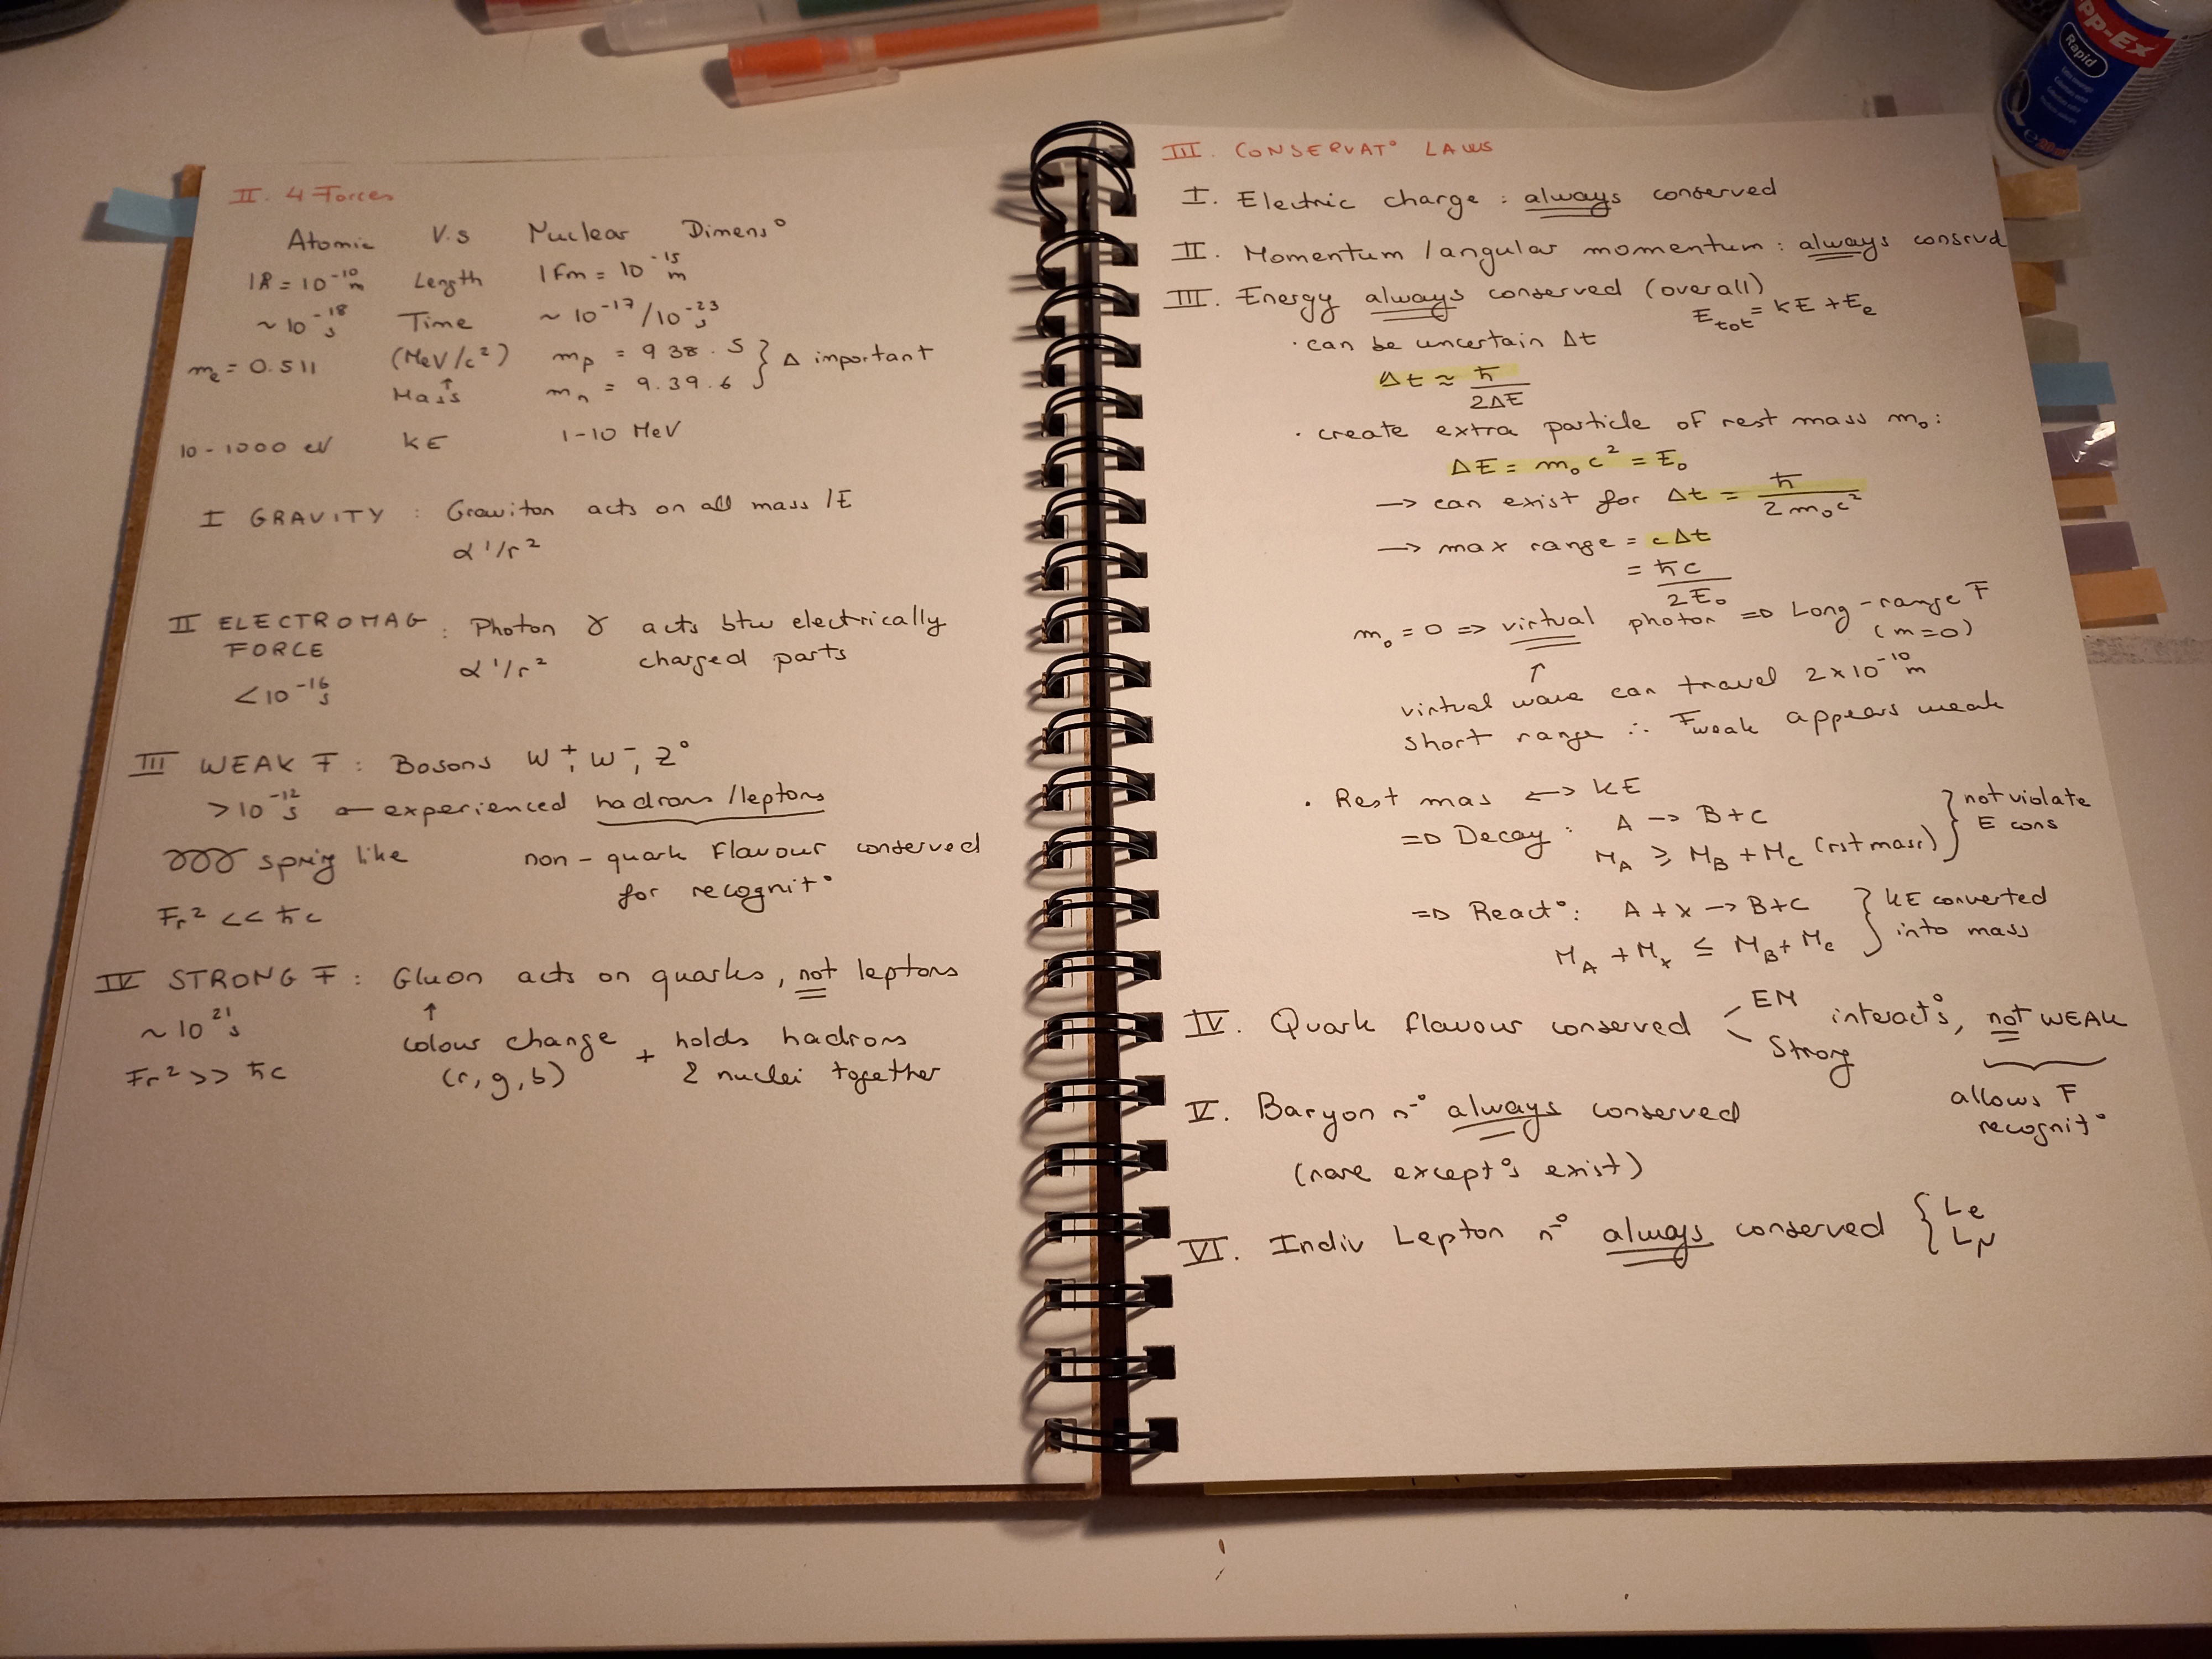 II. 4 Forces
Atomic V.s Nuclear Dimens°
1Å = 10⁻¹⁰ m Length 1 Fm = 10⁻¹⁵ m
~ 10⁻¹⁸ s Time ~ 10⁻¹⁷/10⁻²³ s
mₑ = 0.511 (MeV/c²) mₚ = 938.5 } Δ important
Mass ↑ mₙ = 9.39.6
10-1000 eV KE 1-10 MeV
I GRAVITY : Graviton acts on all mass /E
α 1/r²
II ELECTROMAG : Photon γ acts btw electrically
FORCE α 1/r² charged parts
< 10⁻¹⁶ s
III WEAK F : Bosons W⁺, W⁻, Z°
> 10⁻¹² s experienced hadrons/leptons
spring like non-quark flavour conserved
Fr² << ħc for recognit°
IV STRONG F : Gluon acts on quarks, not leptons
~ 10²¹ s ↑ colour change + holds hadrons
Fr² >> ħc (r,g,b) & nuclei together
III. CONSERVAT° LAWS
I. Electric charge : always conserved
II. Momentum /angular momentum : always consrvd
III. Energy always conserved (overall)
E tot = KE + Eₑ
· can be uncertain Δt
Δt ≈ ħ/2ΔE
· create extra particle of rest mass m₀ :
ΔE = m₀c² = E₀
→ can exist for Δt = ħ/2m₀c²
→ max range = cΔt
= ħc/2E₀
m₀ = 0 => virtual photon => Long-range F
(m=0)
↑
virtual wave can travel 2×10⁻¹⁰ m
short range ∴ F weak appears weak
· Rest mas ↔ KE
=> Decay : A → B+C } not violate
M_A ≥ M_B + M_C (rst mass) } E cons
=> React° : A + x → B+C } KE converted
M_A + M_x ≤ M_B + M_C } into mass
IV. Quark flavour conserved < EM interact°s, not WEAK
Strong allows F
recognit°
V. Baryon n° always conserved
(rare except°s exist)
VI. Indiv Lepton n° always conserved { Le
Lμ
Pp-Ex
Rapid